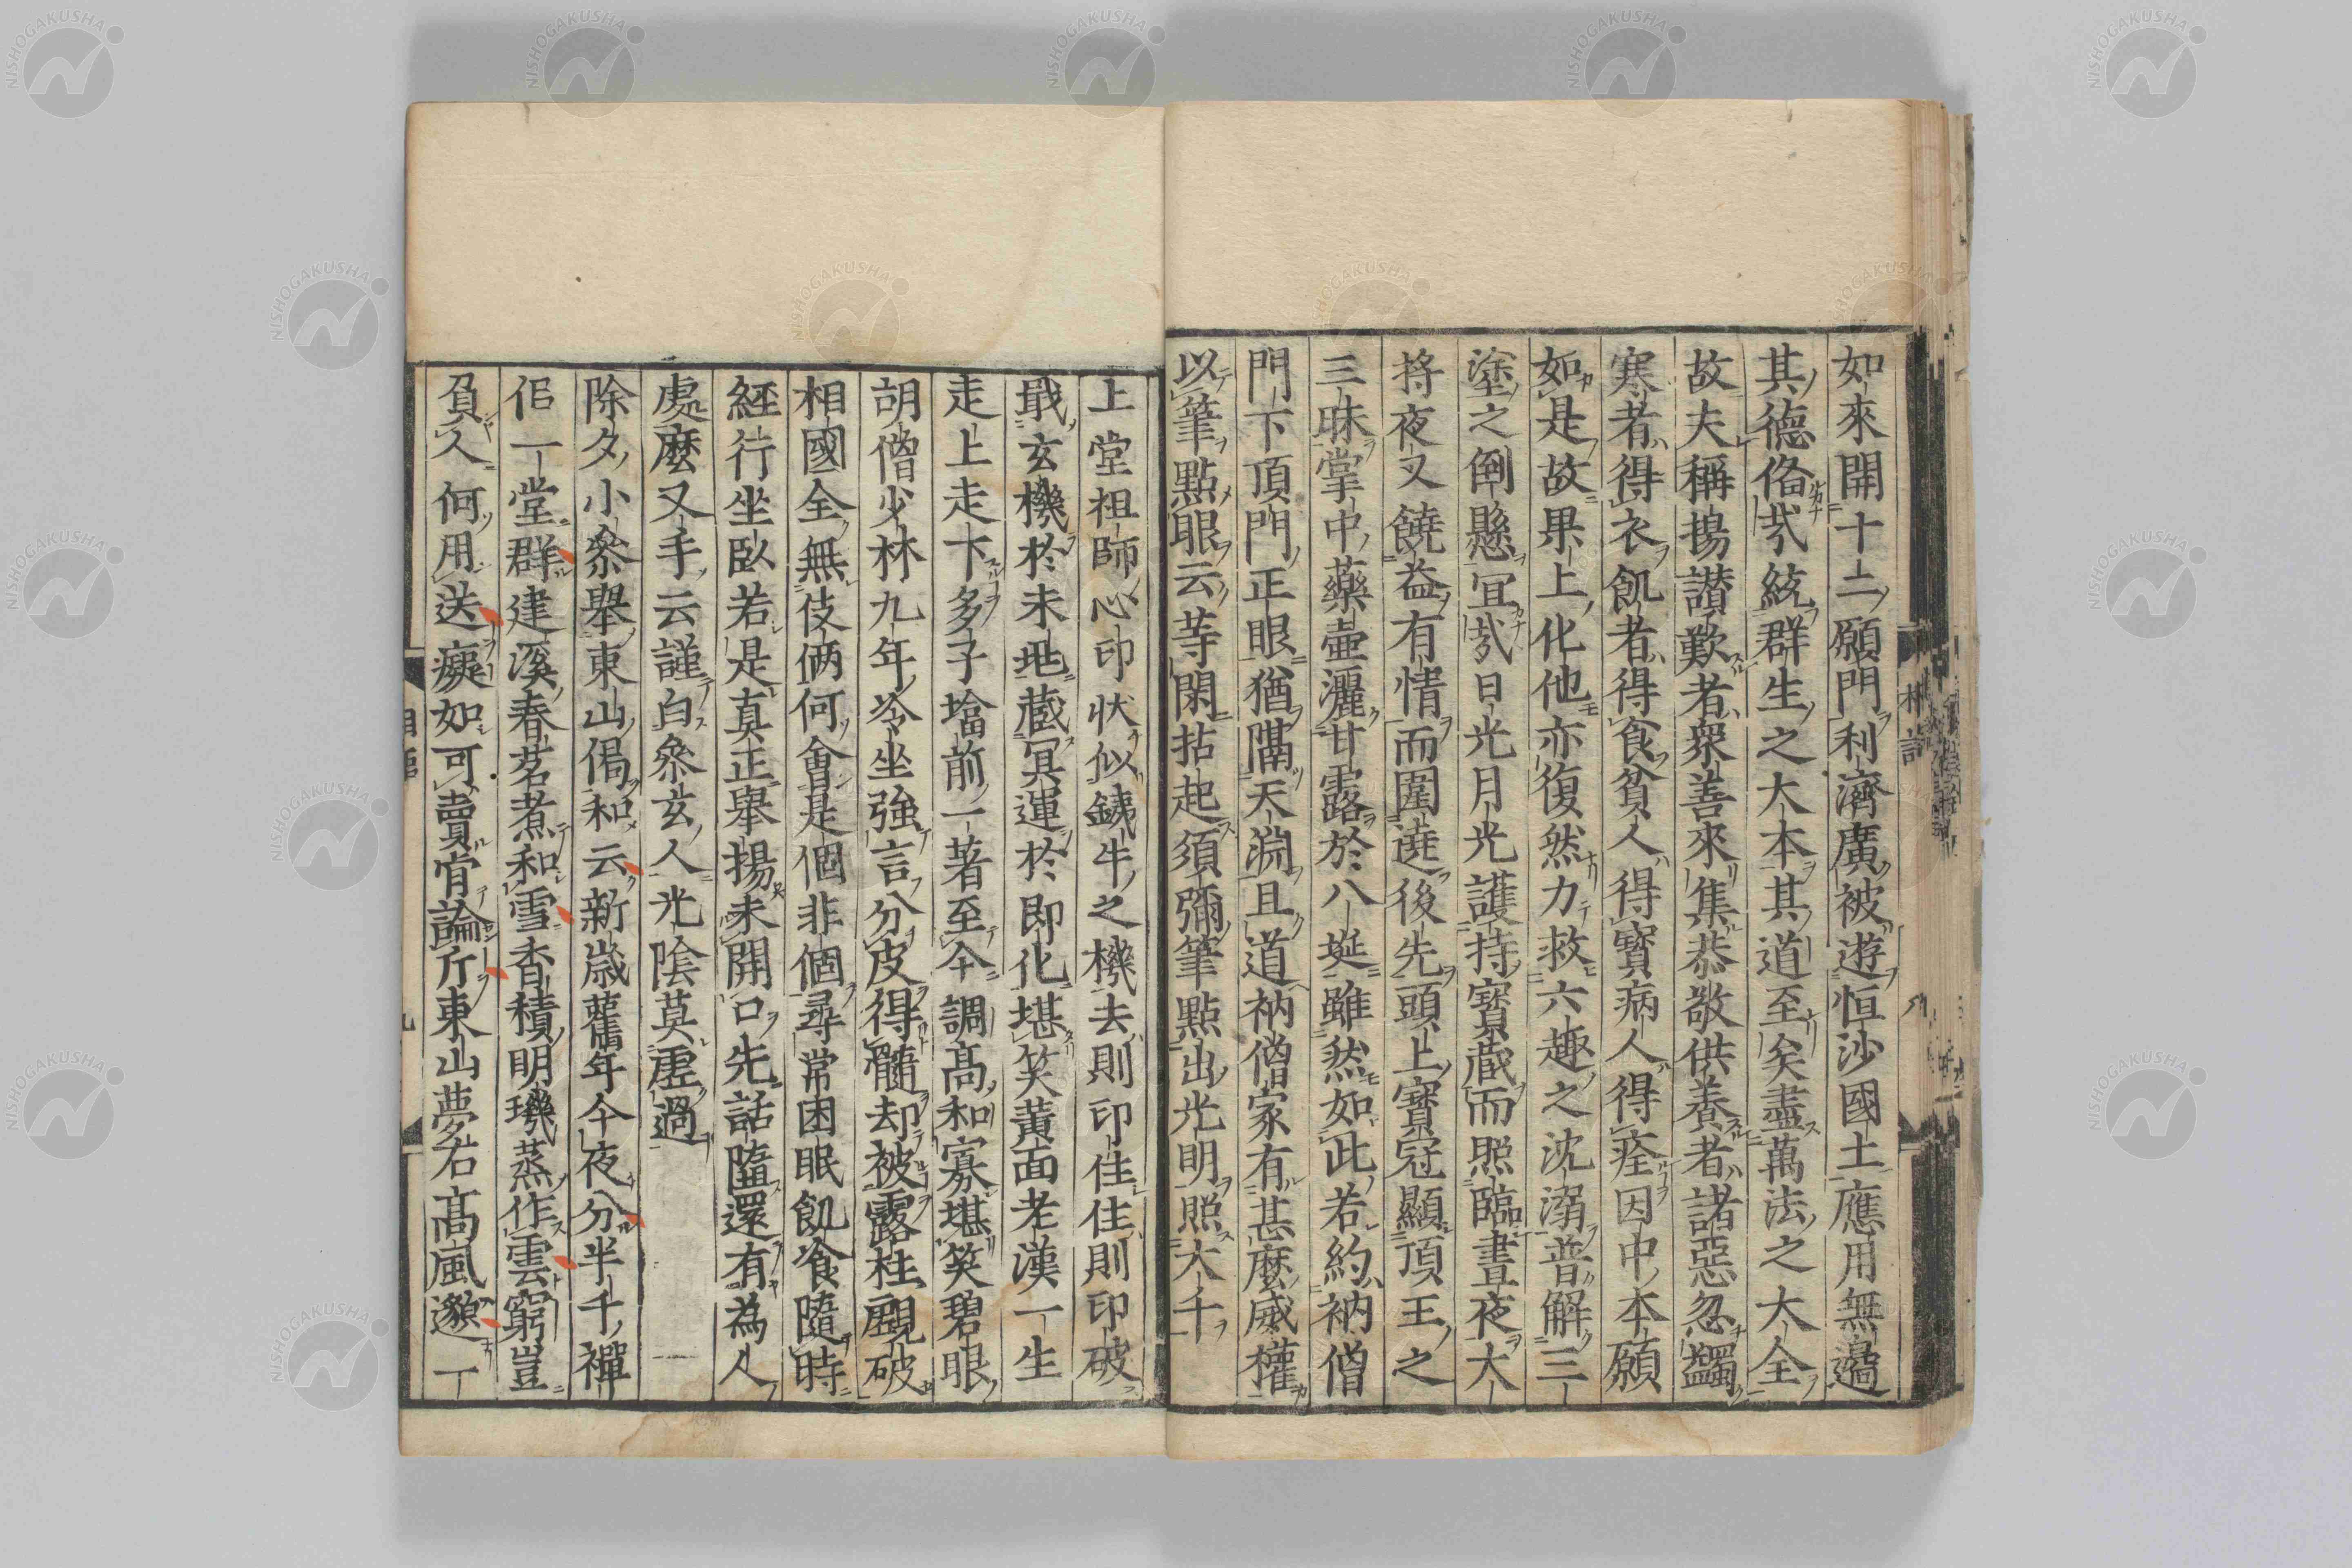 如來開十二願門利濟廣被遊恒沙國土應用無邊
其德偹哉統群生之大本其道至矣盡萬法之大全
故夫稱揚讃歎者衆善來集恭敬供養者諸惡忽蠲
寒者得衣飢者得食貧人得寳病人得痊因中本願
如是故果上化他亦復然力救六趣之沈溺普解三
塗之倒懸冝哉日光月光護持寳蔵而照臨晝夜大
將夜叉饒益有情而圍遶後先頭上寳冠顯頂王之
三昧掌中藥壷灑甘露於八埏雖然如此若約衲僧
門下頂門正眼猶隔天淵且道衲僧家有甚麼威權
以筆點眼云等閑拈起須彌筆點出光明照大千
上堂祖師心印状似鐵牛之機去則印住住則印破
戢玄機於未地蔵冥運於即化堪笑黄面老漢一生
走上走下多子塔前一著至今調髙和寡堪笑碧眼
胡僧少林九年冷坐強言分皮得髓却被露柱覷破
相國全無伎倆何會是個非個尋常困眠飢飡隨時
経行坐臥若是真正舉揚未開口先話墮還有為人
處麼叉手云謹白叅玄人光陰莫虚過
除夕小叅舉東山偈和云新歳舊年今夜分半千禪
侶一堂群建溪春茗煮和雪杳積明璣蒸作雲窮豈
負人何用送癡如可賣肯論斤東山夢名髙風邈一
NISHOGAKUSHA